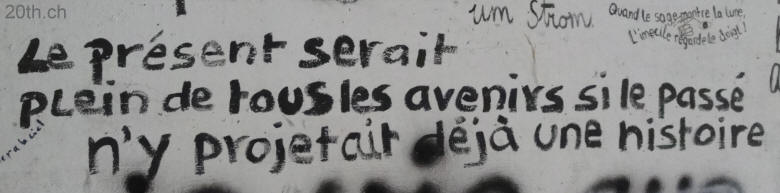 20th.ch
um Strom.
Quand le sage montre la lune,
L'imecile regarde le doigt!
Le présent serait
plein de tous les avenirs si le passé
n'y projetait déjà une histoire